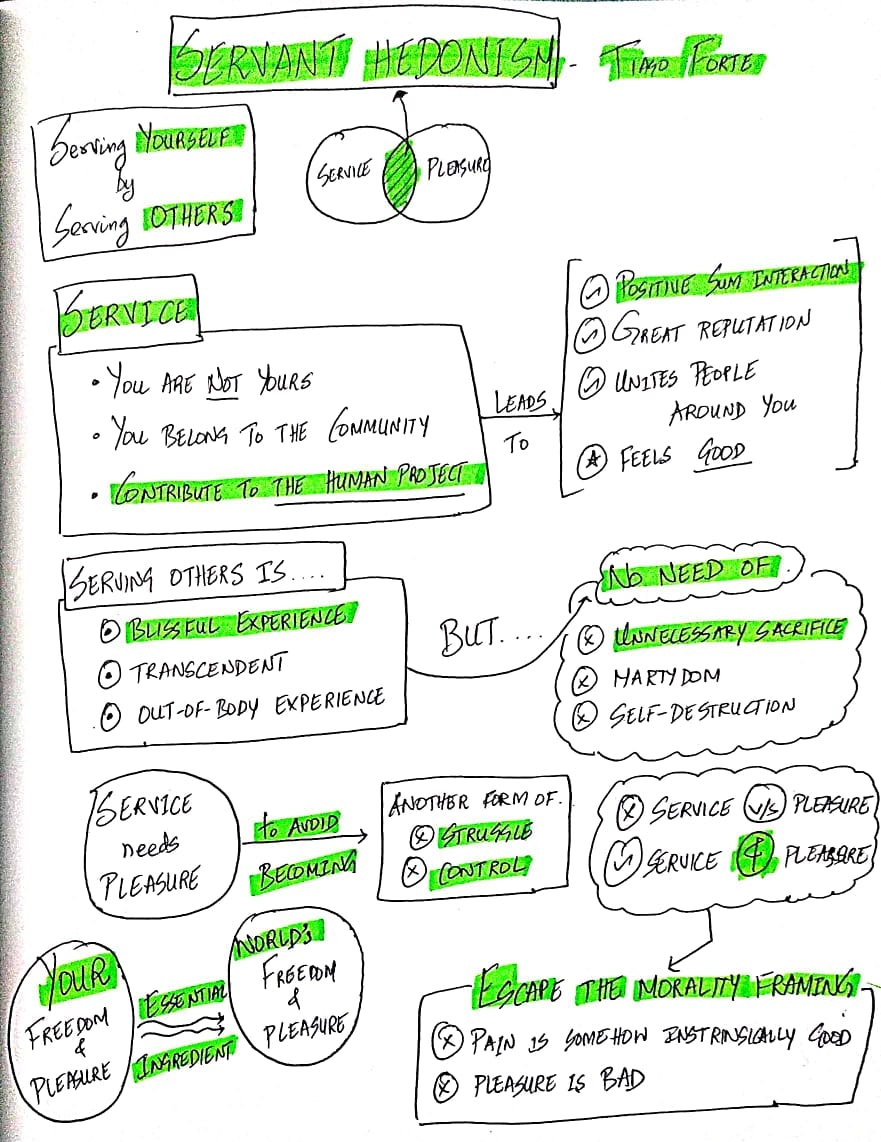 SERVANT HEDONISM - TIAGO FORTE
Serving YOURSELF
by
Serving OTHERS
SERVICE PLEASURE
SERVICE
• YOU ARE NOT YOURS
• YOU BELONG TO THE COMMUNITY
• CONTRIBUTE TO THE HUMAN PROJECT
LEADS
TO
POSITIVE SUM INTERACTION
GREAT REPUTATION
UNITES PEOPLE
AROUND YOU
FEELS GOOD
SERVING OTHERS IS....
BLISSFUL EXPERIENCE
TRANSCENDENT
OUT-OF-BODY EXPERIENCE
BUT....
NO NEED OF.
UNNECESSARY SACRIFICE
MARTYDOM
SELF-DESTRUCTION
SERVICE
needs
PLEASURE
to AVOID
BECOMING
ANOTHER FORM OF.
STRUGGLE
CONTROL
SERVICE V/S PLEASURE
SERVICE & PLEASURE
YOUR
FREEDOM
&
PLEASURE
ESSENTIAL
INGREDIENT
WORLD'S
FREEDOM
&
PLEASURE
ESCAPE THE MORALITY FRAMING
PAIN IS SOMEHOW INSTRINSICALLY GOOD
PLEASURE IS BAD